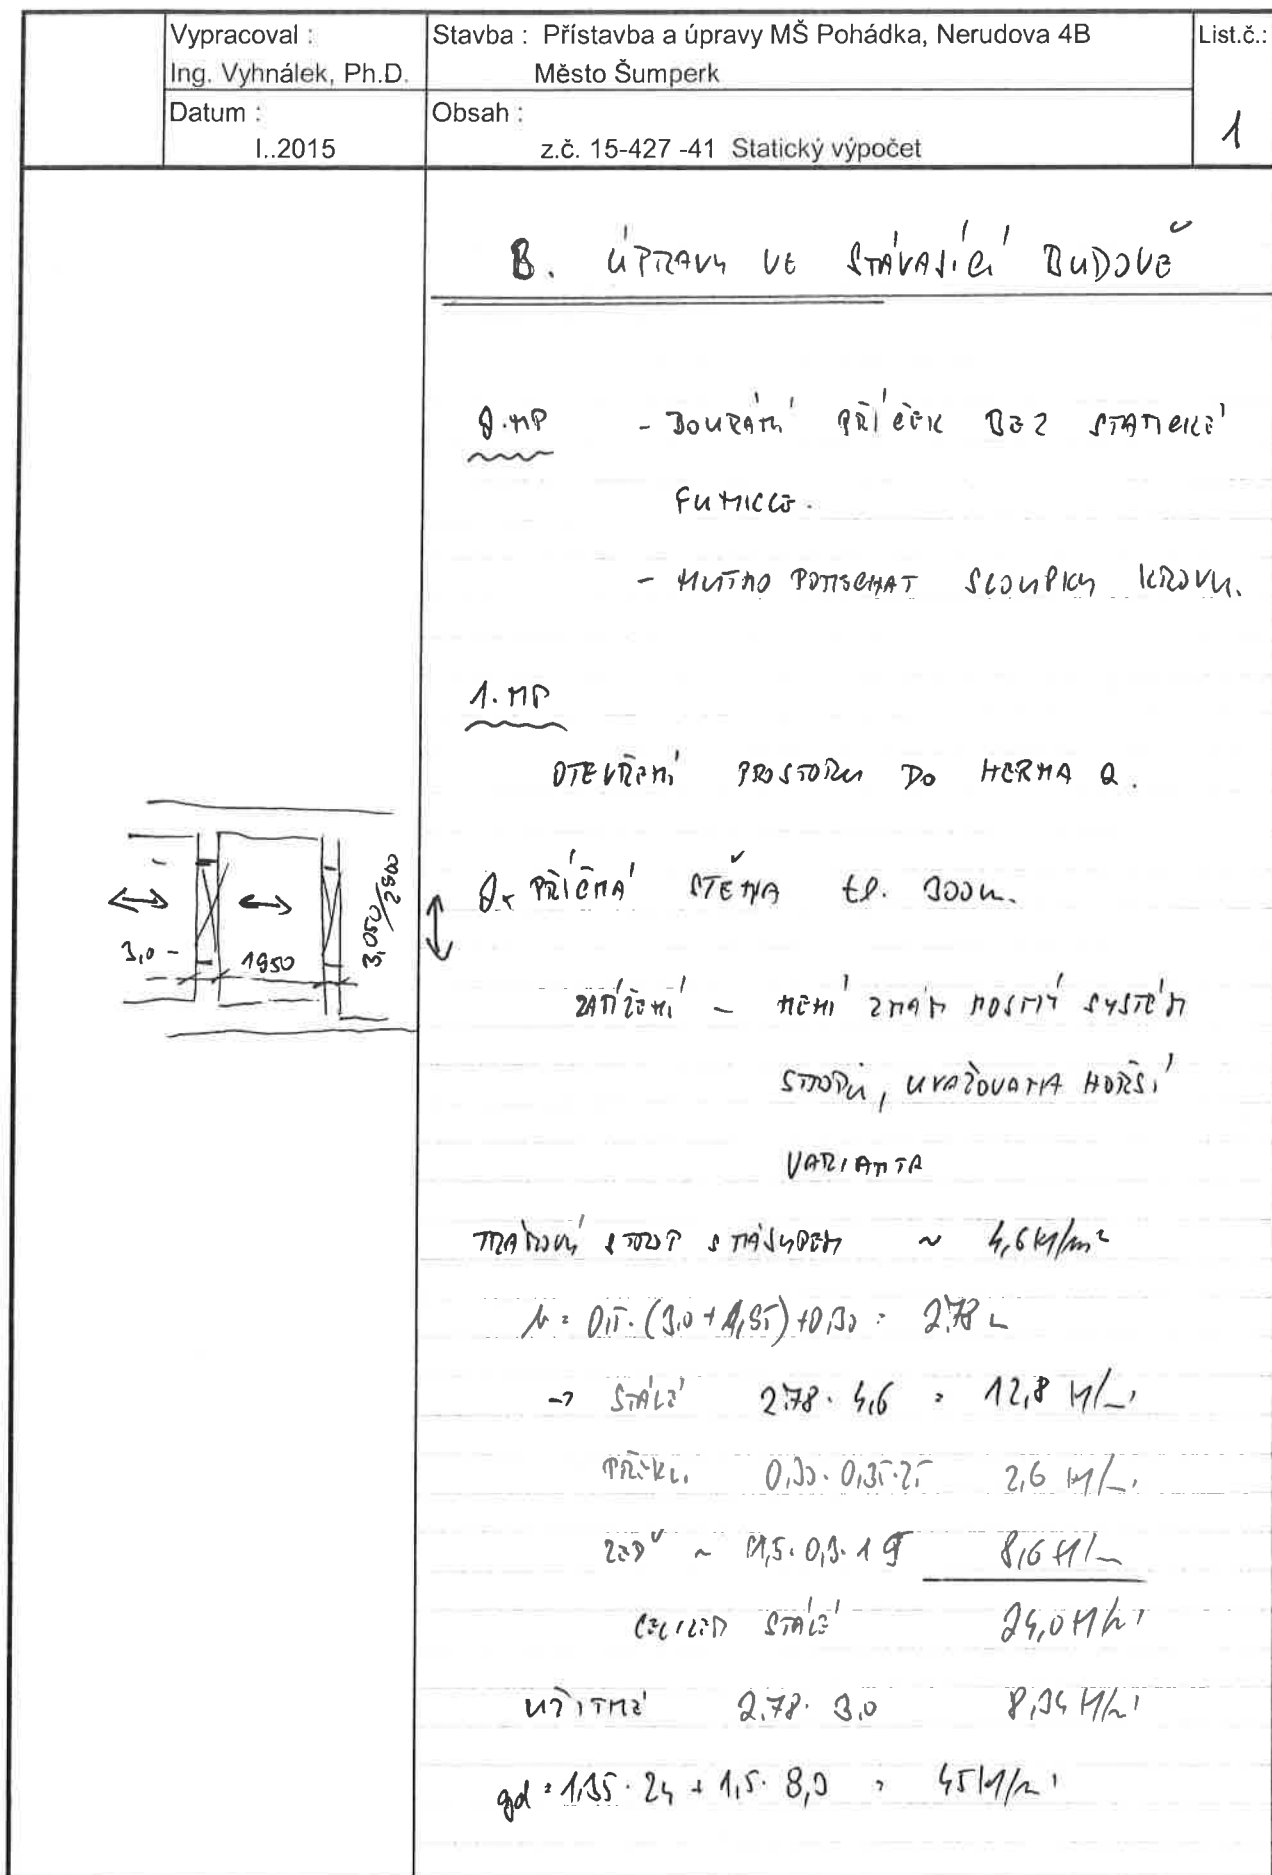 Vypracoval :
Ing. Vyhnálek, Ph.D.
Stavba : Přístavba a úpravy MŠ Pohádka, Nerudova 4B
Město Šumperk
List.č.:
1
Datum :
I..2015
Obsah :
z.č. 15-427 -41 Statický výpočet
B. ÚPRAVY VE STÁVAJÍCÍ BUDOVĚ
2.NP - BOURÁNÍ PŘÍČEK BEZ STATICKÉ
FUNKCE.
- NUTNO PONECHAT SLOUPKY KROVU.
1.NP
OTEVŘENÍ PROSTORU DO HERNA 2.
2x PŘÍČNÁ STĚNA tl. 300
3,0 - 1950 3,050/2900
ZATÍŽENÍ - NENÍ ZNÁM NOSNÝ SYSTÉM
STROPŮ, UVAŽOVANA HORŠÍ
VARIANTA
TRÁMOVÝ STROP S NÁSYPEM ~ 4,6 kN/m²
= 0,5 · (3,0 + 1,95) + 0,30 = 2,78
→ STÁLÉ 2,78 · 4,6 = 12,8 kN/m'
PŘEKL. 0,30 · 0,35 · 25 2,6 kN/m'
ZEĎ ~ 1,5 · 0,3 · 19 8,6 kN/m
CELKEM STÁLÉ 24,0 kN/m'
UŽITNÉ 2,78 · 3,0 8,34 kN/m'
gd = 1,35 · 24 + 1,5 · 8,3 = 45 kN/m'